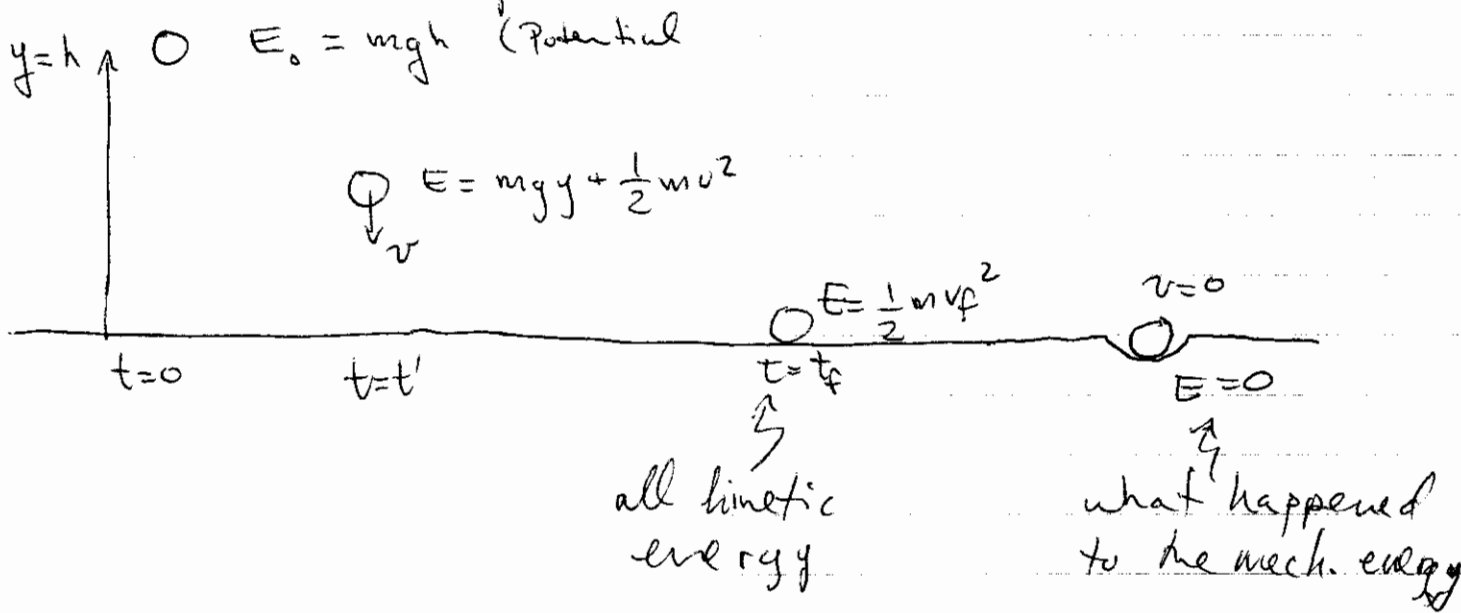 y=h O E₀ = mgh (Potential
E = mgy + 1/2 mv²
v
E = 1/2 mv_f²
v=0
t=0 t=t' t=t_f
E=0
all kinetic
energy
what happened
to the mech. energy